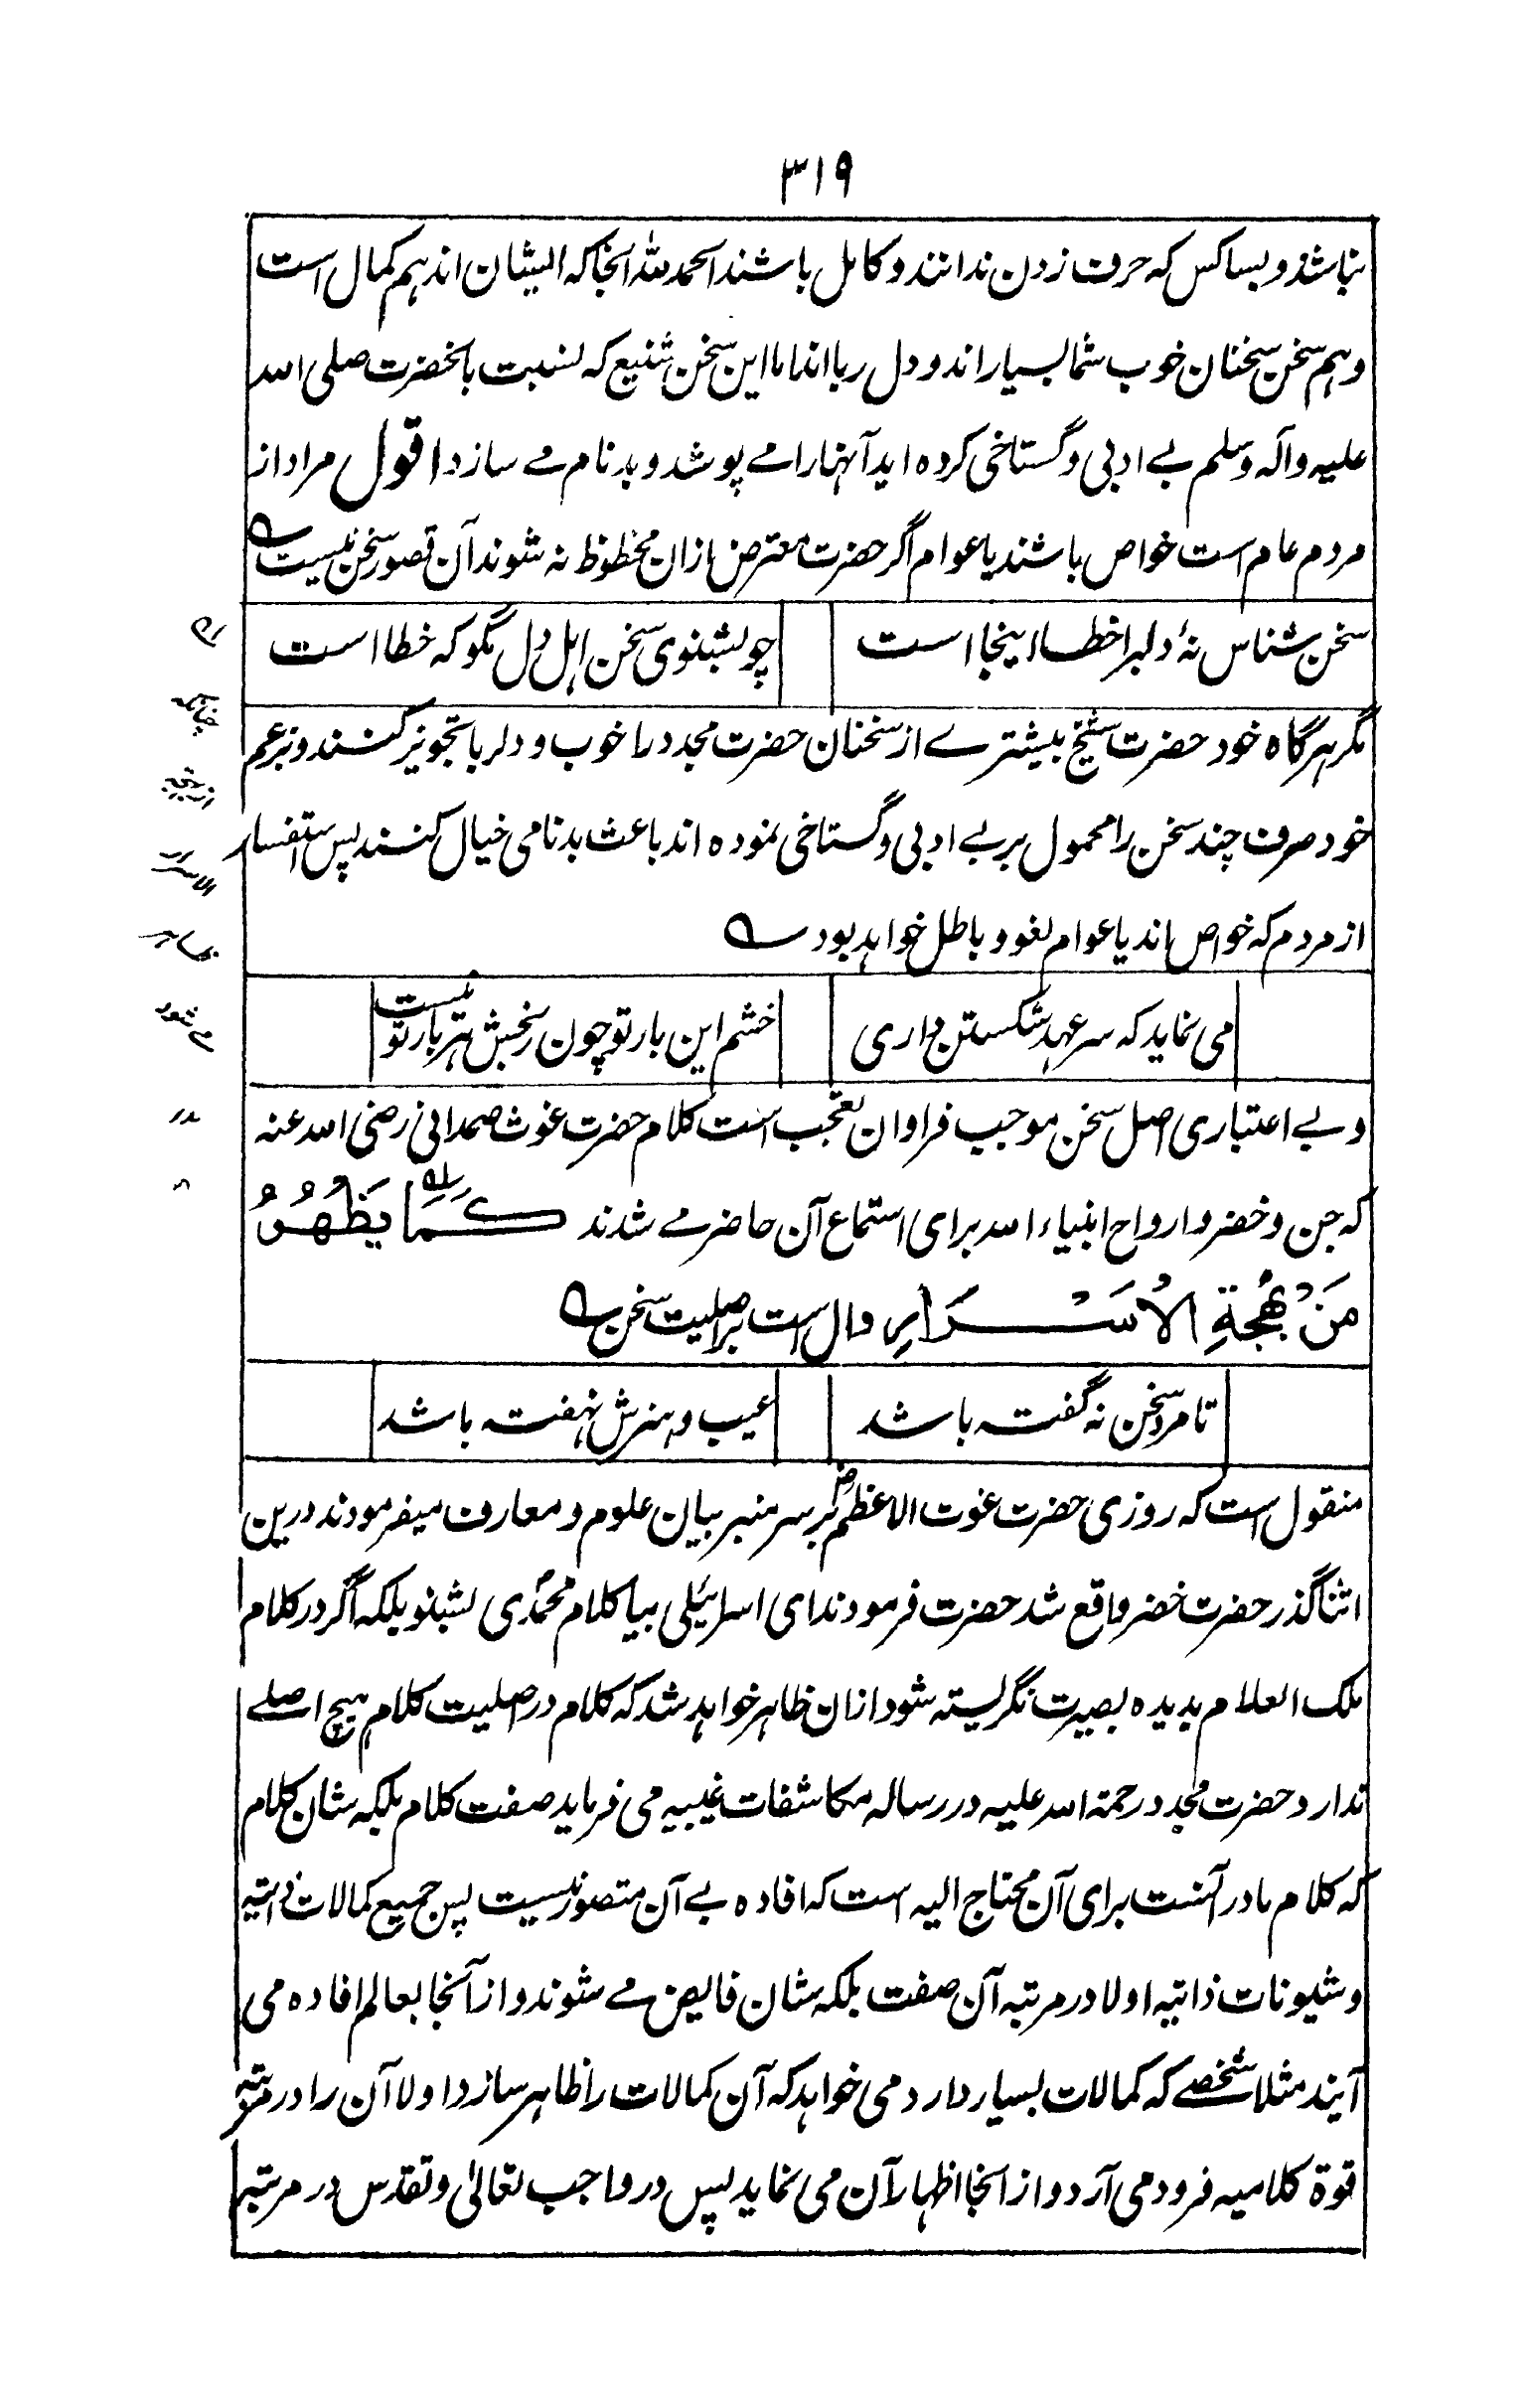 ۳۱۹
نباشد و بسا کس که حرف زدن ندانند و کامل باشند الحمد لله آنجا که ایشان اند هم کمال است
و هم سخن سخنان خوب شما بسیار اند و دل ربا اند اما این سخن شنیع که نسبت بآنحضرت صلی الله
علیه وآله وسلم بے ادبی و گستاخی کرده اید آنهارا مے پوشد و بدنام مے سازد اقول مراد از
مردم عام است خواص باشند یا عوام اگر حضرت معترض ازان محظوظ نه شوند آن قصور سخن نیست
سخن شناس نۀ دلبرا خطا اینجا است
چو بشنوی سخن اهل دل مگو که خطا است
مگر هر گاه خود حضرت شیخ بیشترے از سخنان حضرت مجدد را خوب و دلربا تجویز کنند و بزعم
خود صرف چند سخن را محمول بر بے ادبی و گستاخی نموده اند باعث بدنامی خیال کنند پس استفسار
از مردم که خواص اند یا عوام لغو و باطل خواهد بود
می نماید که سر عهد شکستن داری
خشم این بار تو چون رنجش هر بار تو نیست
و بے اعتباری اصل سخن موجب فراوان تعجب است کلام حضرت غوث صمدانی رضی الله عنه
که جن و خضر و ارواح انبیاء الله برای استماع آن حاضر مے شدند كَمَا يَظْهُرُ
مِنْ بَهْجَةِ الْأَسْرَارِ دال است بر اصلیت سخن
تا مرد سخن نه گفته باشد
عیب و هنرش نهفته باشد
منقول است که روزی حضرت غوث الاعظم رض بر سر منبر بیان علوم و معارف میفرمودند درین
اثنا گذر حضرت خضر واقع شد حضرت فرمودند ای اسرائیلی بیا کلام محمدی بشنو بلکه اگر در کلام
ملک العلام بدیده بصیرت نگریسته شود ازان ظاهر خواهد شد که کلام در اصلیت کلام هیچ اصلے
ندارد حضرت مجدد رحمة الله علیه در رساله مکاشفات غیبیه می فرماید صفت کلام بلکه شان کلام
که کلام ما در آنست برای آن محتاج الیه است که افاده بے آن متصور نیست پس جمیع کمالات ذاتیه
و شیونات ذاتیه اولا در مرتبه آن صفت بلکه شان فایض مے شوند و از آنجا بعالم افاده می
آیند مثلا شخصے که کمالات بسیار دارد می خواهد که آن کمالات را ظاهر سازد اولا آن را در مرتبه
قوة کلامیه فرود می آرد و از انجا اظهار آن می نماید پس در واجب تعالیٰ و تقدس در مرتبه